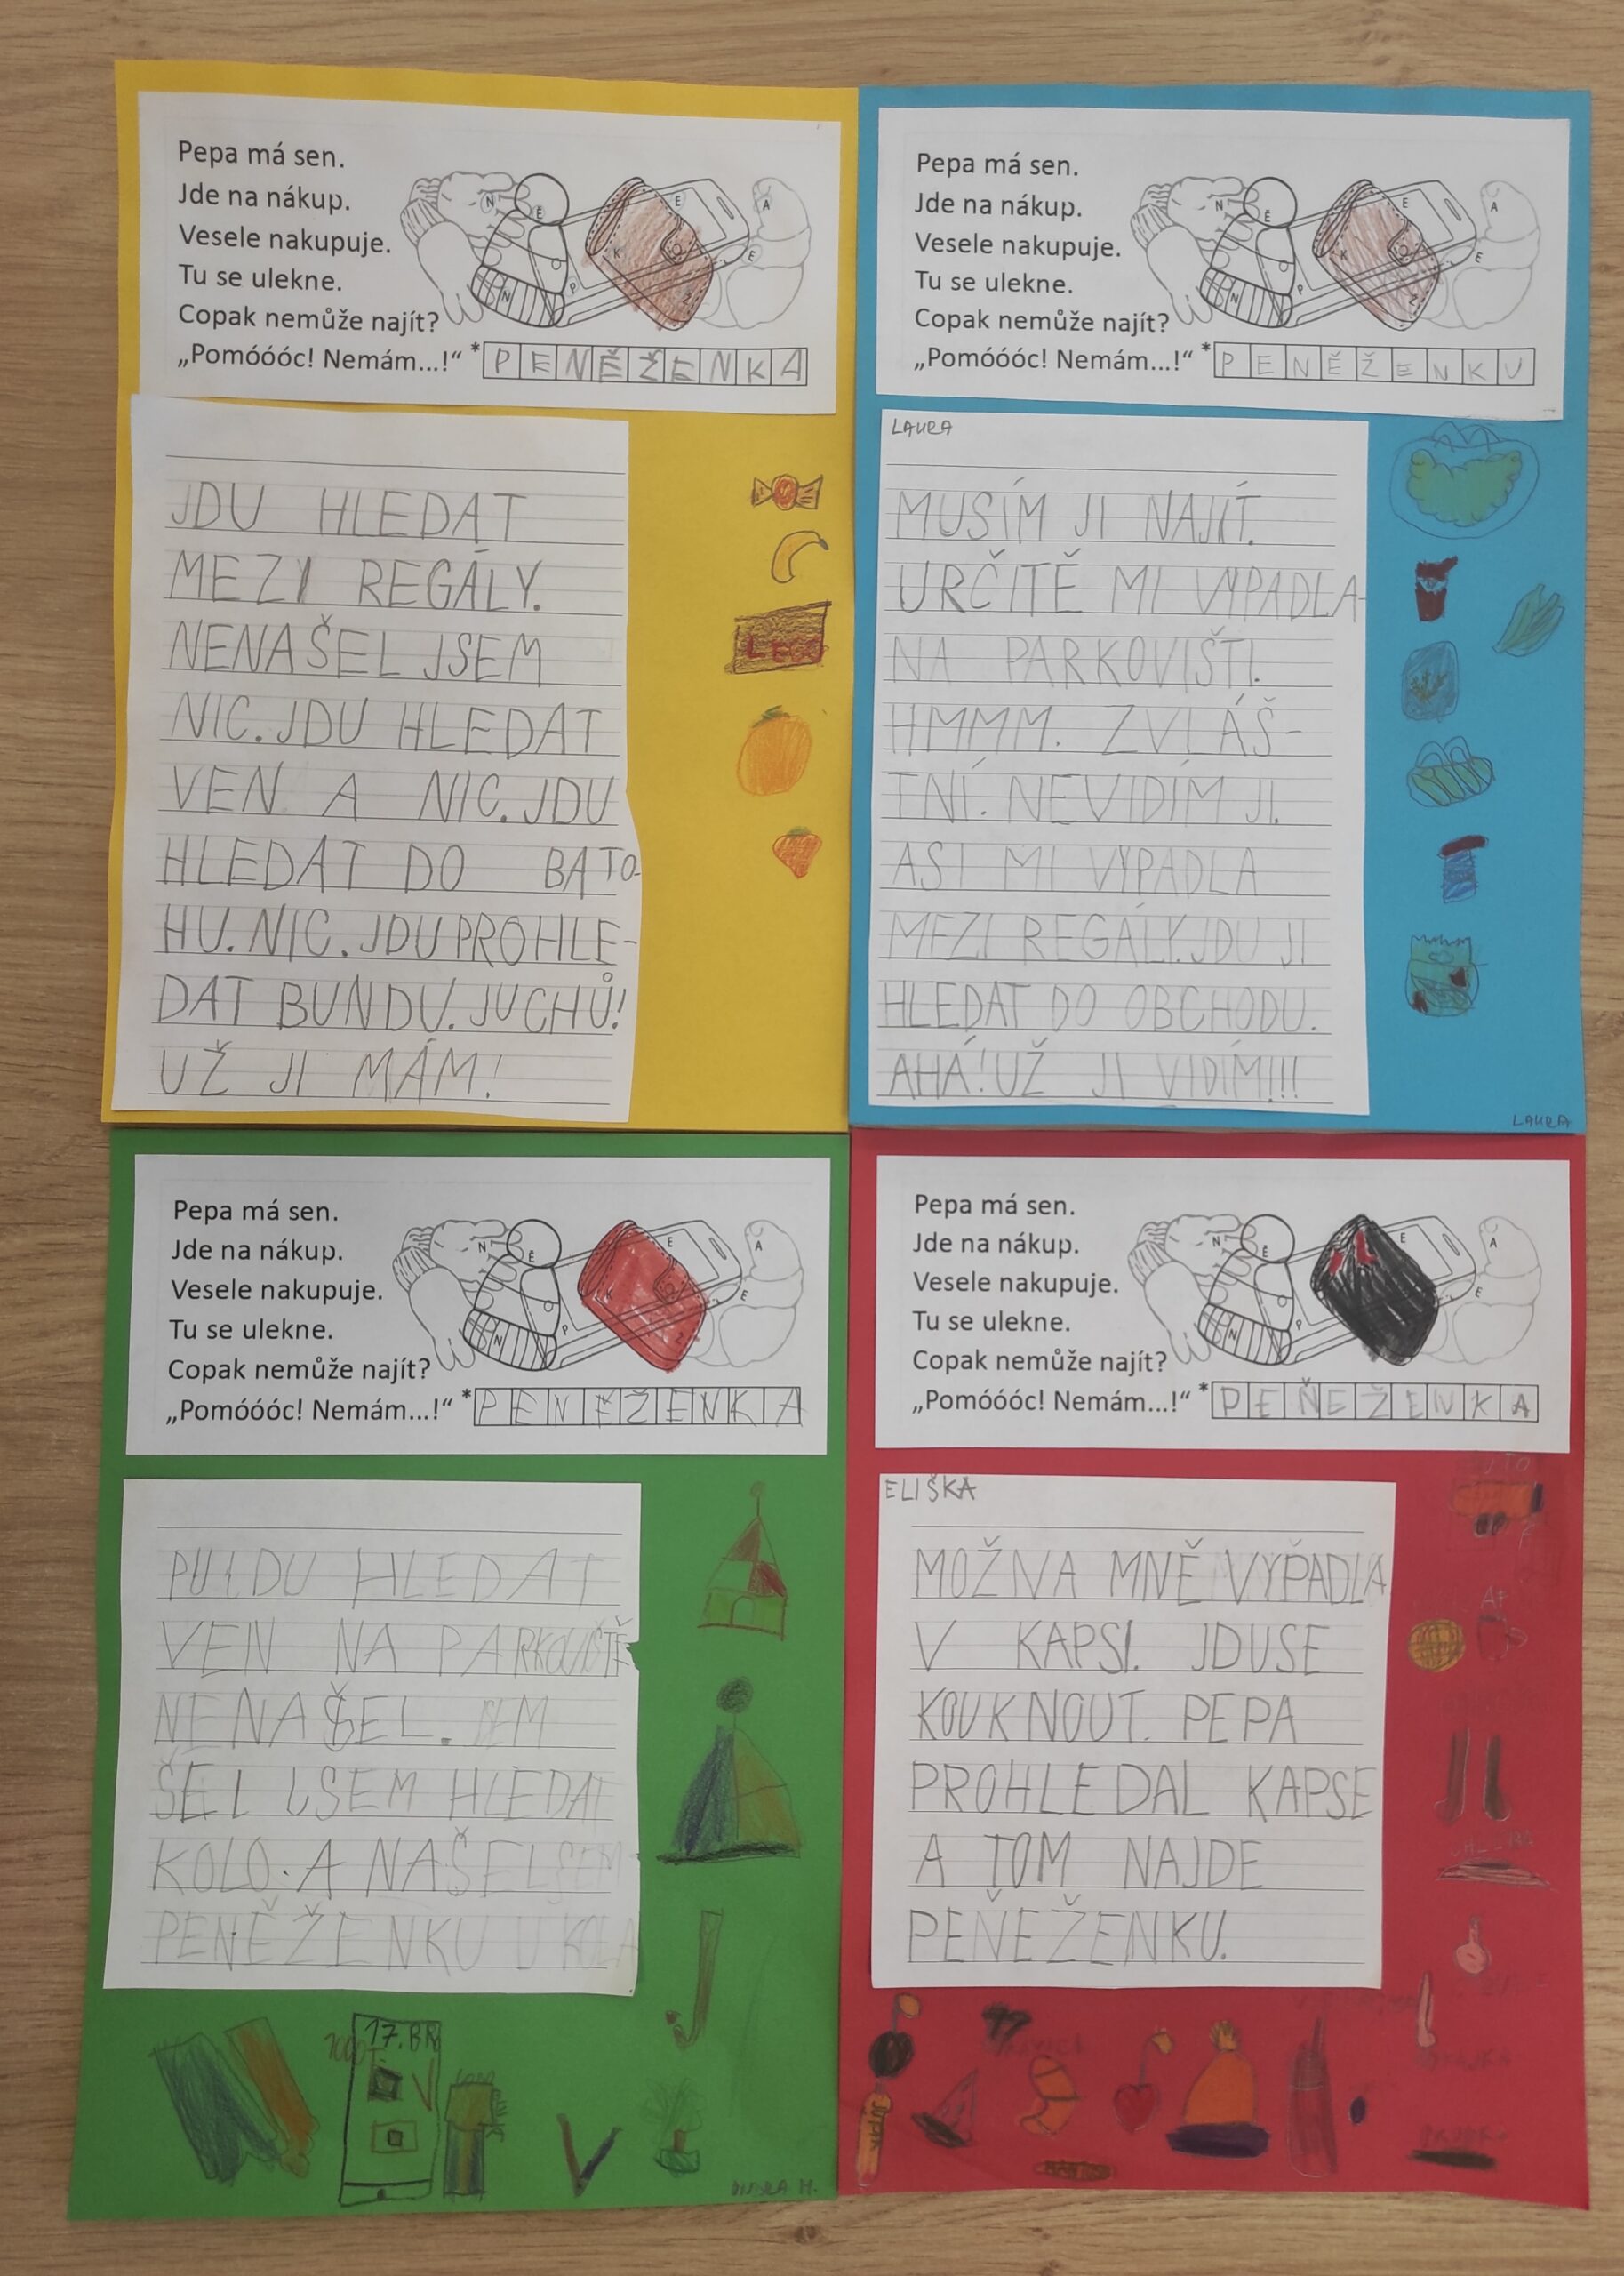 Pepa má sen.
Jde na nákup.
Vesele nakupuje.
Tu se ulekne.
Copak nemůže najít?
„Pomóóóc! Nemám...!“ * PENĚŽENKA
N E E A K E N P Z
JDU HLEDAT
MEZI REGÁLY.
NENAŠEL JSEM
NIC. JDU HLEDAT
VEN A NIC. JDU
HLEDAT DO BATO-
HU. NIC. JDU PROHLE-
DAT BUNDU. JUCHŮ!
UŽ JI MÁM!
LEGO
Pepa má sen.
Jde na nákup.
Vesele nakupuje.
Tu se ulekne.
Copak nemůže najít?
„Pomóóóc! Nemám...!“ * PENĚŽENKU
N E E A K E N P Z
LAURA
MUSÍM JI NAJÍT.
URČITĚ MI VYPADLA
NA PARKOVIŠTI.
HMMM. ZVLÁŠ-
TNÍ. NEVIDÍM JI.
ASI MI VYPADLA
MEZI REGÁLY. JDU JI
HLEDAT DO OBCHODU.
AHÁ! UŽ JI VIDÍM!!!
LAURA
Pepa má sen.
Jde na nákup.
Vesele nakupuje.
Tu se ulekne.
Copak nemůže najít?
„Pomóóóc! Nemám...!“ * PENĚŽENKA
N E E A K E N P Z
HLEDAT
VEN NA PARKOVIŠTĚ
NENAŠEL. SEM
ŠEL JSEM HLEDAT
KOLO. A NAŠEL SEM
PENĚŽENKU U KOLA
17. BR
Pepa má sen.
Jde na nákup.
Vesele nakupuje.
Tu se ulekne.
Copak nemůže najít?
„Pomóóóc! Nemám...!“ * PEŇEŽENKA
N E E A E N P
ELIŠKA
MOŽNA MNĚ VYPADLA
V KAPSI. JDUSE
KOUKNOUT. PEPA
PROHLEDAL KAPSE
A TOM NAJDE
PEŇEŽENKU.
AUTO